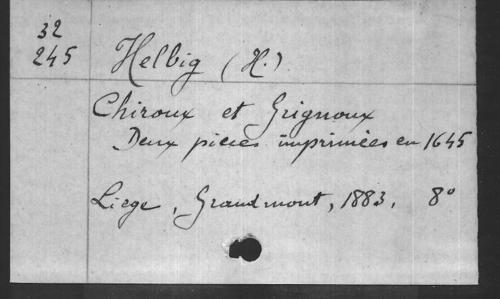 32
245
Helbig (H.)
Chiroux et Grignoux
Deux pièces imprimées en 1645
Liège, Grandmont, 1883, 8°